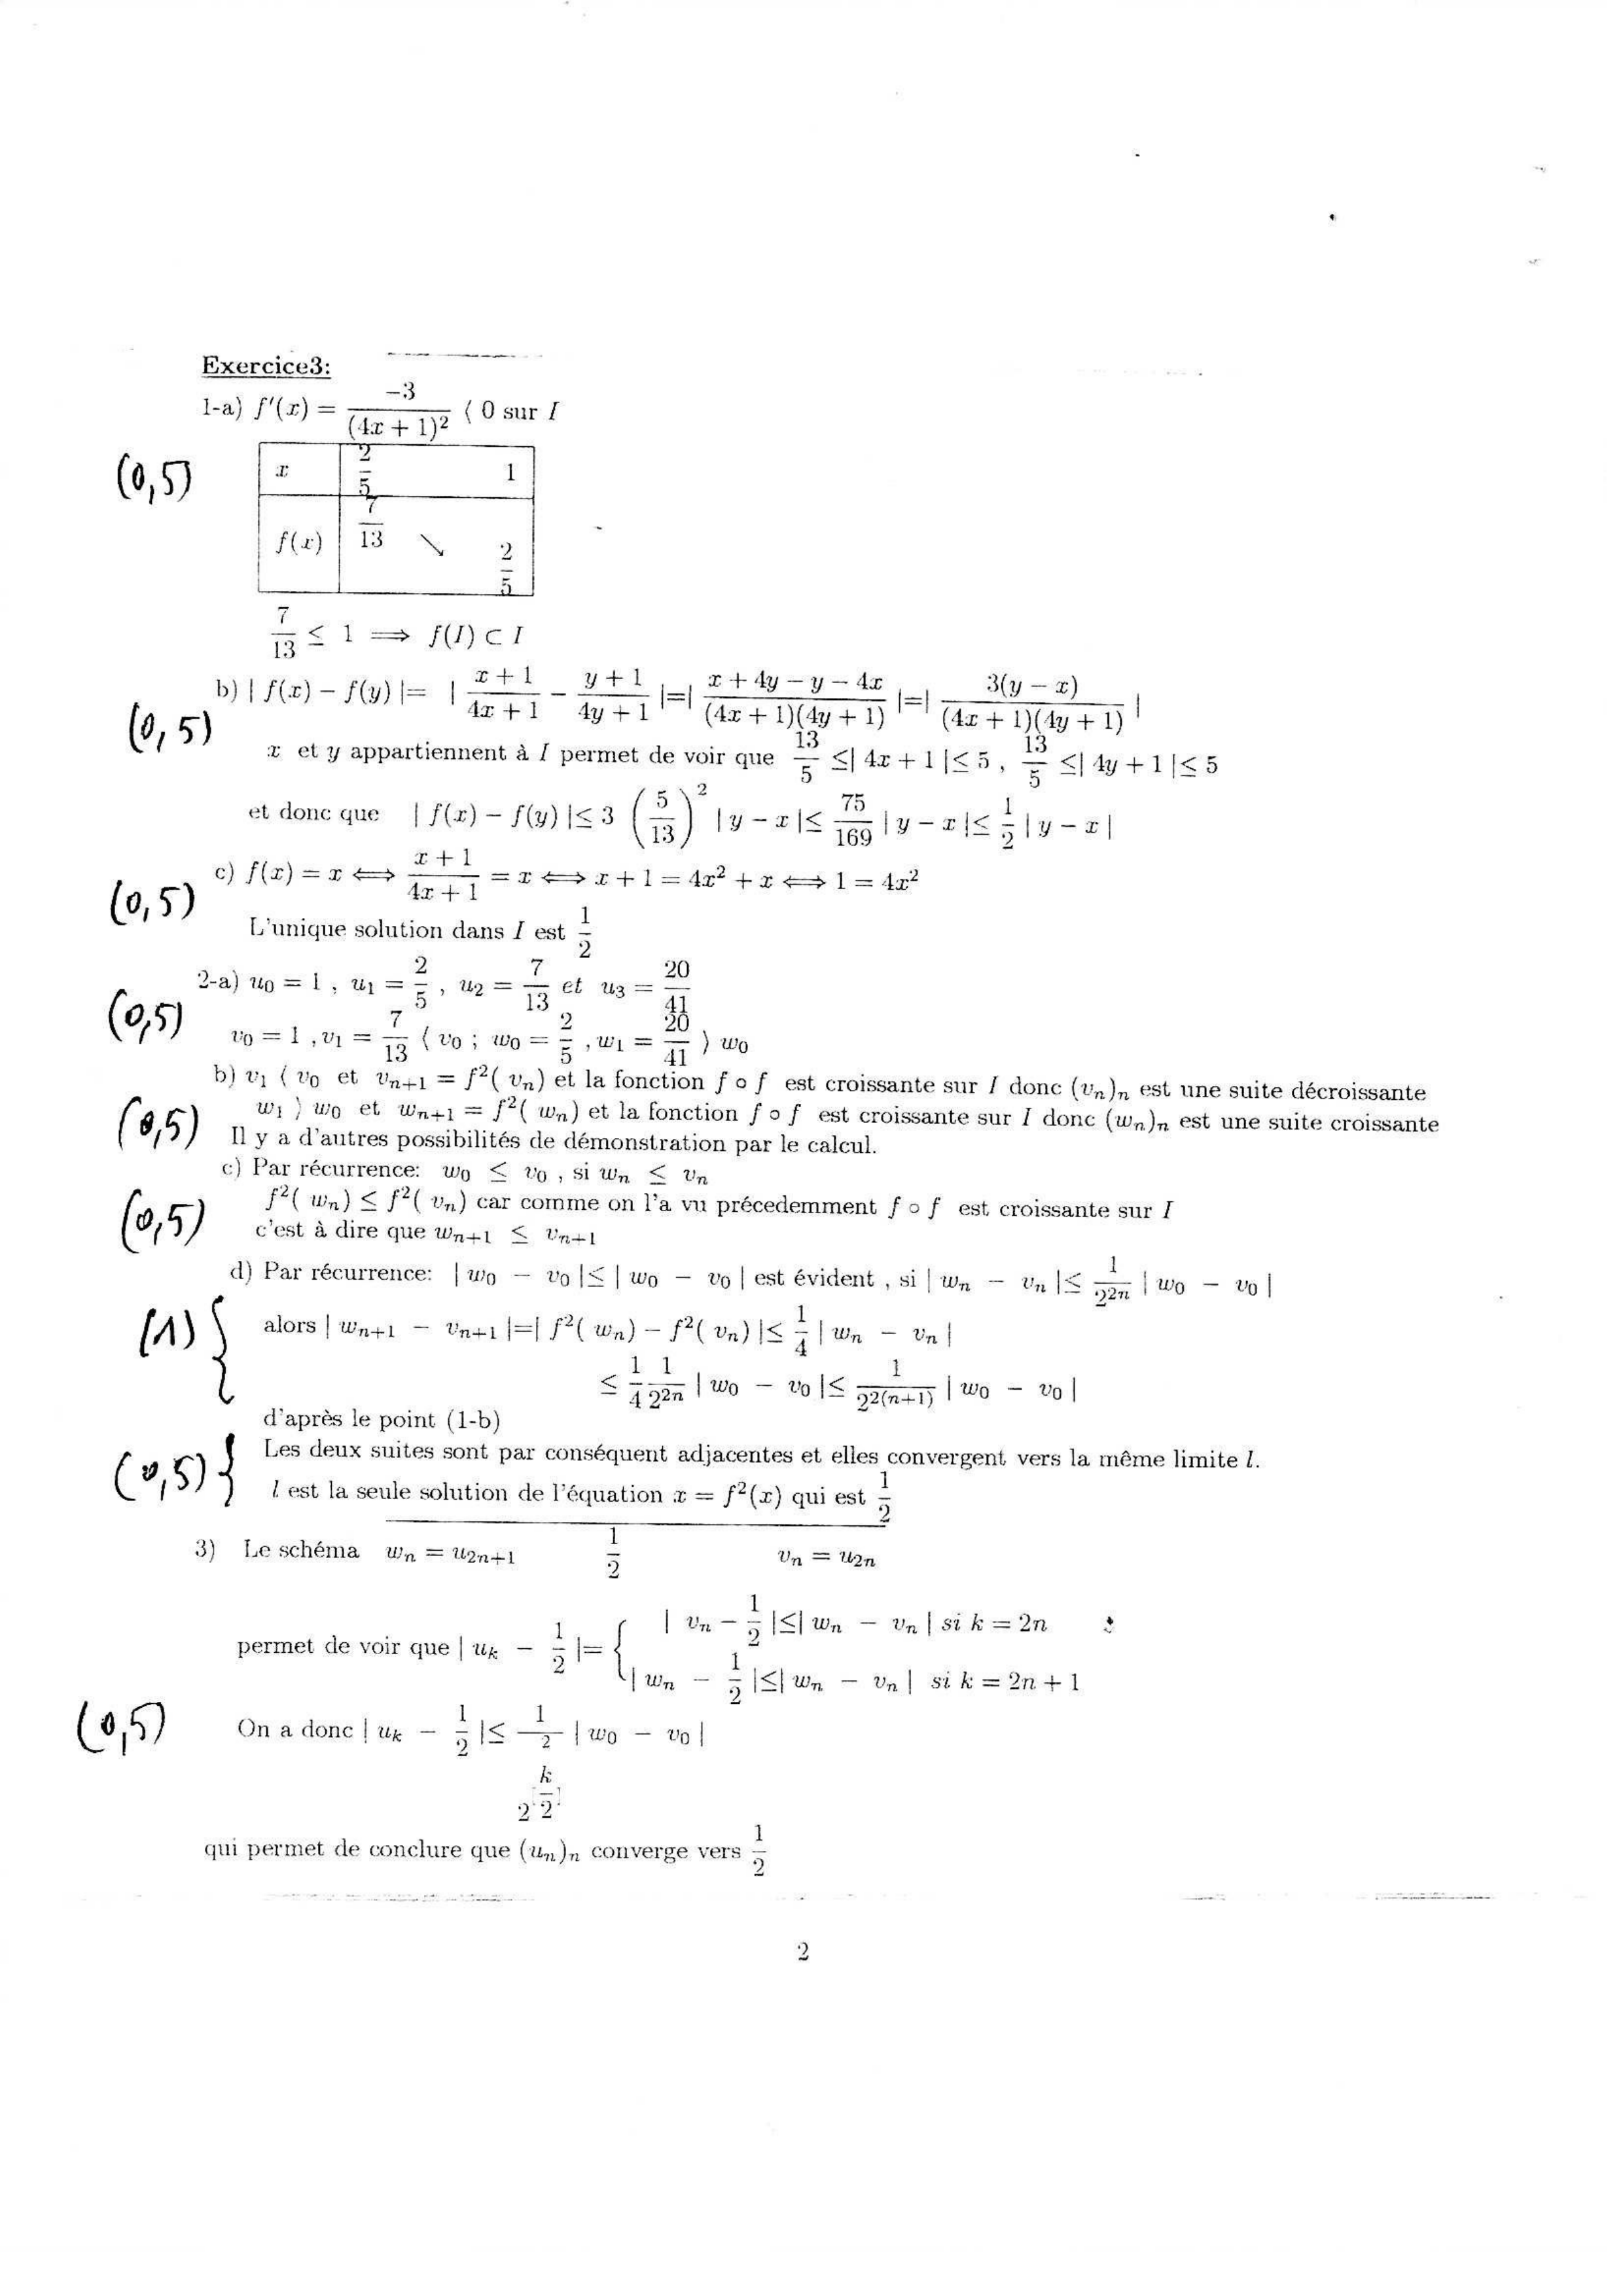 Exercice3:
1-a) f′(x) = −3/(4x + 1)² ⟨ 0 sur I
(0,5)
x 2/5 1
f(x) 7/13 ↘ 2/5
7/13 ≤ 1 ⟹ f(I) ⊂ I
b) | f(x) − f(y) |= | (x + 1)/(4x + 1) − (y + 1)/(4y + 1) |=| (x + 4y − y − 4x)/((4x + 1)(4y + 1)) |=| 3(y − x)/((4x + 1)(4y + 1)) |
(0,5)
x et y appartiennent à I permet de voir que 13/5 ≤| 4x + 1 |≤ 5 , 13/5 ≤| 4y + 1 |≤ 5
et donc que | f(x) − f(y) |≤ 3 (5/13)² | y − x |≤ 75/169 | y − x |≤ 1/2 | y − x |
c) f(x) = x ⟺ (x + 1)/(4x + 1) = x ⟺ x + 1 = 4x² + x ⟺ 1 = 4x²
(0,5)
L'unique solution dans I est 1/2
2-a) u₀ = 1 , u₁ = 2/5 , u₂ = 7/13 et u₃ = 20/41
(0,5)
v₀ = 1 , v₁ = 7/13 ⟨ v₀ ; w₀ = 2/5 , w₁ = 20/41 ⟩ w₀
b) v₁ ⟨ v₀ et vₙ₊₁ = f²( vₙ) et la fonction f ∘ f est croissante sur I donc (vₙ)ₙ est une suite décroissante
w₁ ⟩ w₀ et wₙ₊₁ = f²( wₙ) et la fonction f ∘ f est croissante sur I donc (wₙ)ₙ est une suite croissante
(0,5)
Il y a d'autres possibilités de démonstration par le calcul.
c) Par récurrence: w₀ ≤ v₀ , si wₙ ≤ vₙ
f²( wₙ) ≤ f²( vₙ) car comme on l'a vu précedemment f ∘ f est croissante sur I
(0,5)
c'est à dire que wₙ₊₁ ≤ vₙ₊₁
d) Par récurrence: | w₀ − v₀ |≤ | w₀ − v₀ | est évident , si | wₙ − vₙ |≤ 1/2²ⁿ | w₀ − v₀ |
(1) {
alors | wₙ₊₁ − vₙ₊₁ |=| f²( wₙ) − f²( vₙ) |≤ 1/4 | wₙ − vₙ |
≤ 1/4 1/2²ⁿ | w₀ − v₀ |≤ 1/2²⁽ⁿ⁺¹⁾ | w₀ − v₀ |
d'après le point (1-b)
(0,5) {
Les deux suites sont par conséquent adjacentes et elles convergent vers la même limite l.
l est la seule solution de l'équation x = f²(x) qui est 1/2
3) Le schéma wₙ = u₂ₙ₊₁ 1/2 vₙ = u₂ₙ
permet de voir que | uₖ − 1/2 |= { | vₙ − 1/2 |≤| wₙ − vₙ | si k = 2n
| wₙ − 1/2 |≤| wₙ − vₙ | si k = 2n + 1
(0,5)
On a donc | uₖ − 1/2 |≤ 1/2^(2[k/2]) | w₀ − v₀ |
qui permet de conclure que (uₙ)ₙ converge vers 1/2
2